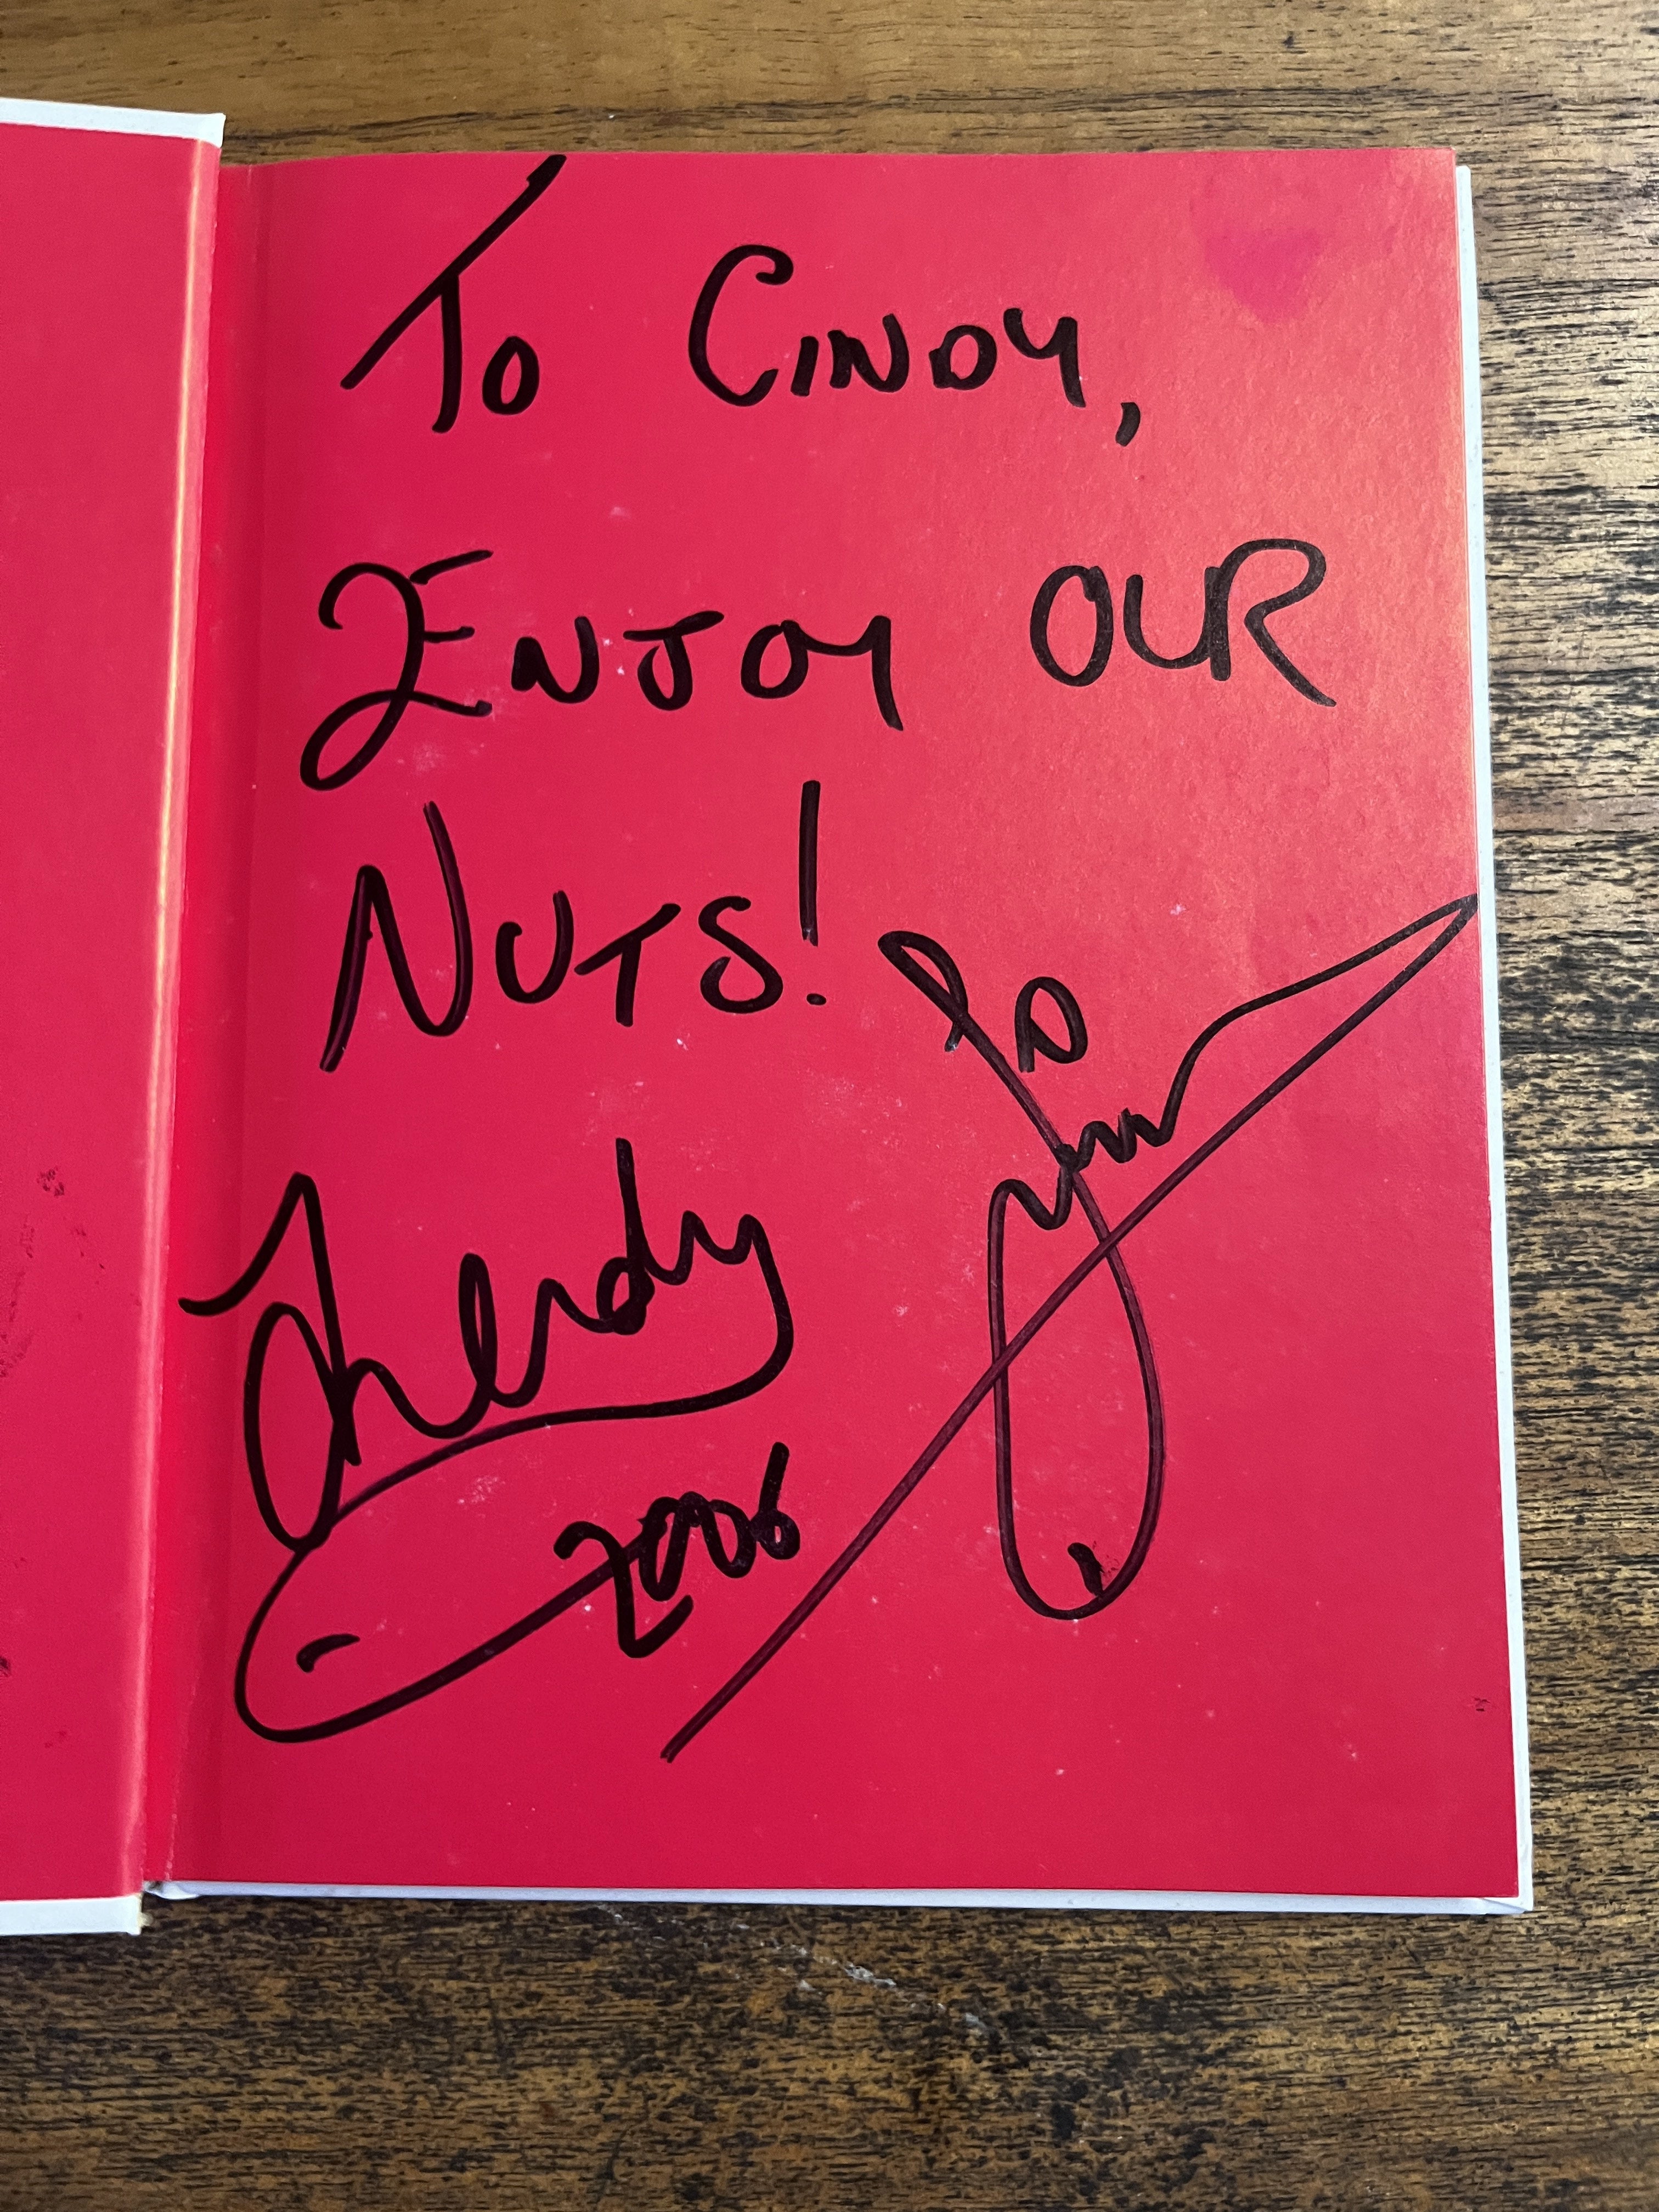 To Cindy,
Enjoy our
Nuts!
2006